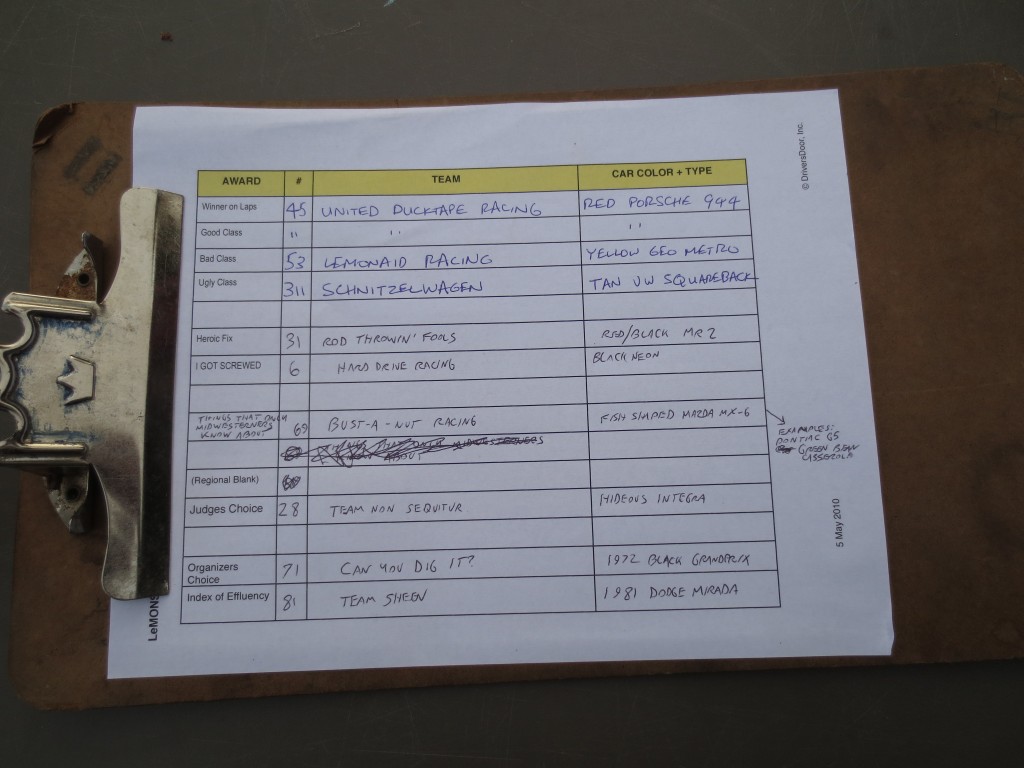 © DriversDoor, Inc.
AWARD # TEAM CAR COLOR + TYPE
Winner on Laps 45 UNITED DUCKTAPE RACING RED PORSCHE 944
Good Class " " "
Bad Class 53 LEMONAID RACING YELLOW GEO METRO
Ugly Class 311 SCHNITZELWAGEN TAN VW SQUAREBACK
Heroic Fix 31 ROD THROWIN' FOOLS RED/BLACK MR2
I GOT SCREWED 6 HARD DRIVE RACING BLACK NEON
THINGS THAT ONLY
MIDWESTERNERS
KNOW ABOUT 69 BUST-A-NUT RACING FISH SHAPED MAZDA MX-6
EXAMPLES:
PONTIAC G5
GREEN BEAN
CASSEROLE
MIDWESTERNERS
ABOUT
(Regional Blank)
Judges Choice 28 TEAM NON SEQUITUR HIDEOUS INTEGRA
Organizers
Choice 71 CAN YOU DIG IT? 1972 BLACK GRANDPRIX
Index of Effluency 81 TEAM SHEEN 1981 DODGE MIRADA
5 May 2010
LeMONS